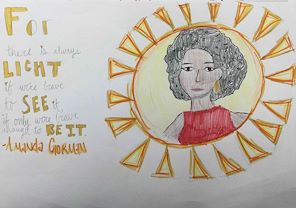 FOR
there is always
LIGHT
if we're brave
to SEE it.
if only we're brave
enough to BE IT.
-Amanda Gorman